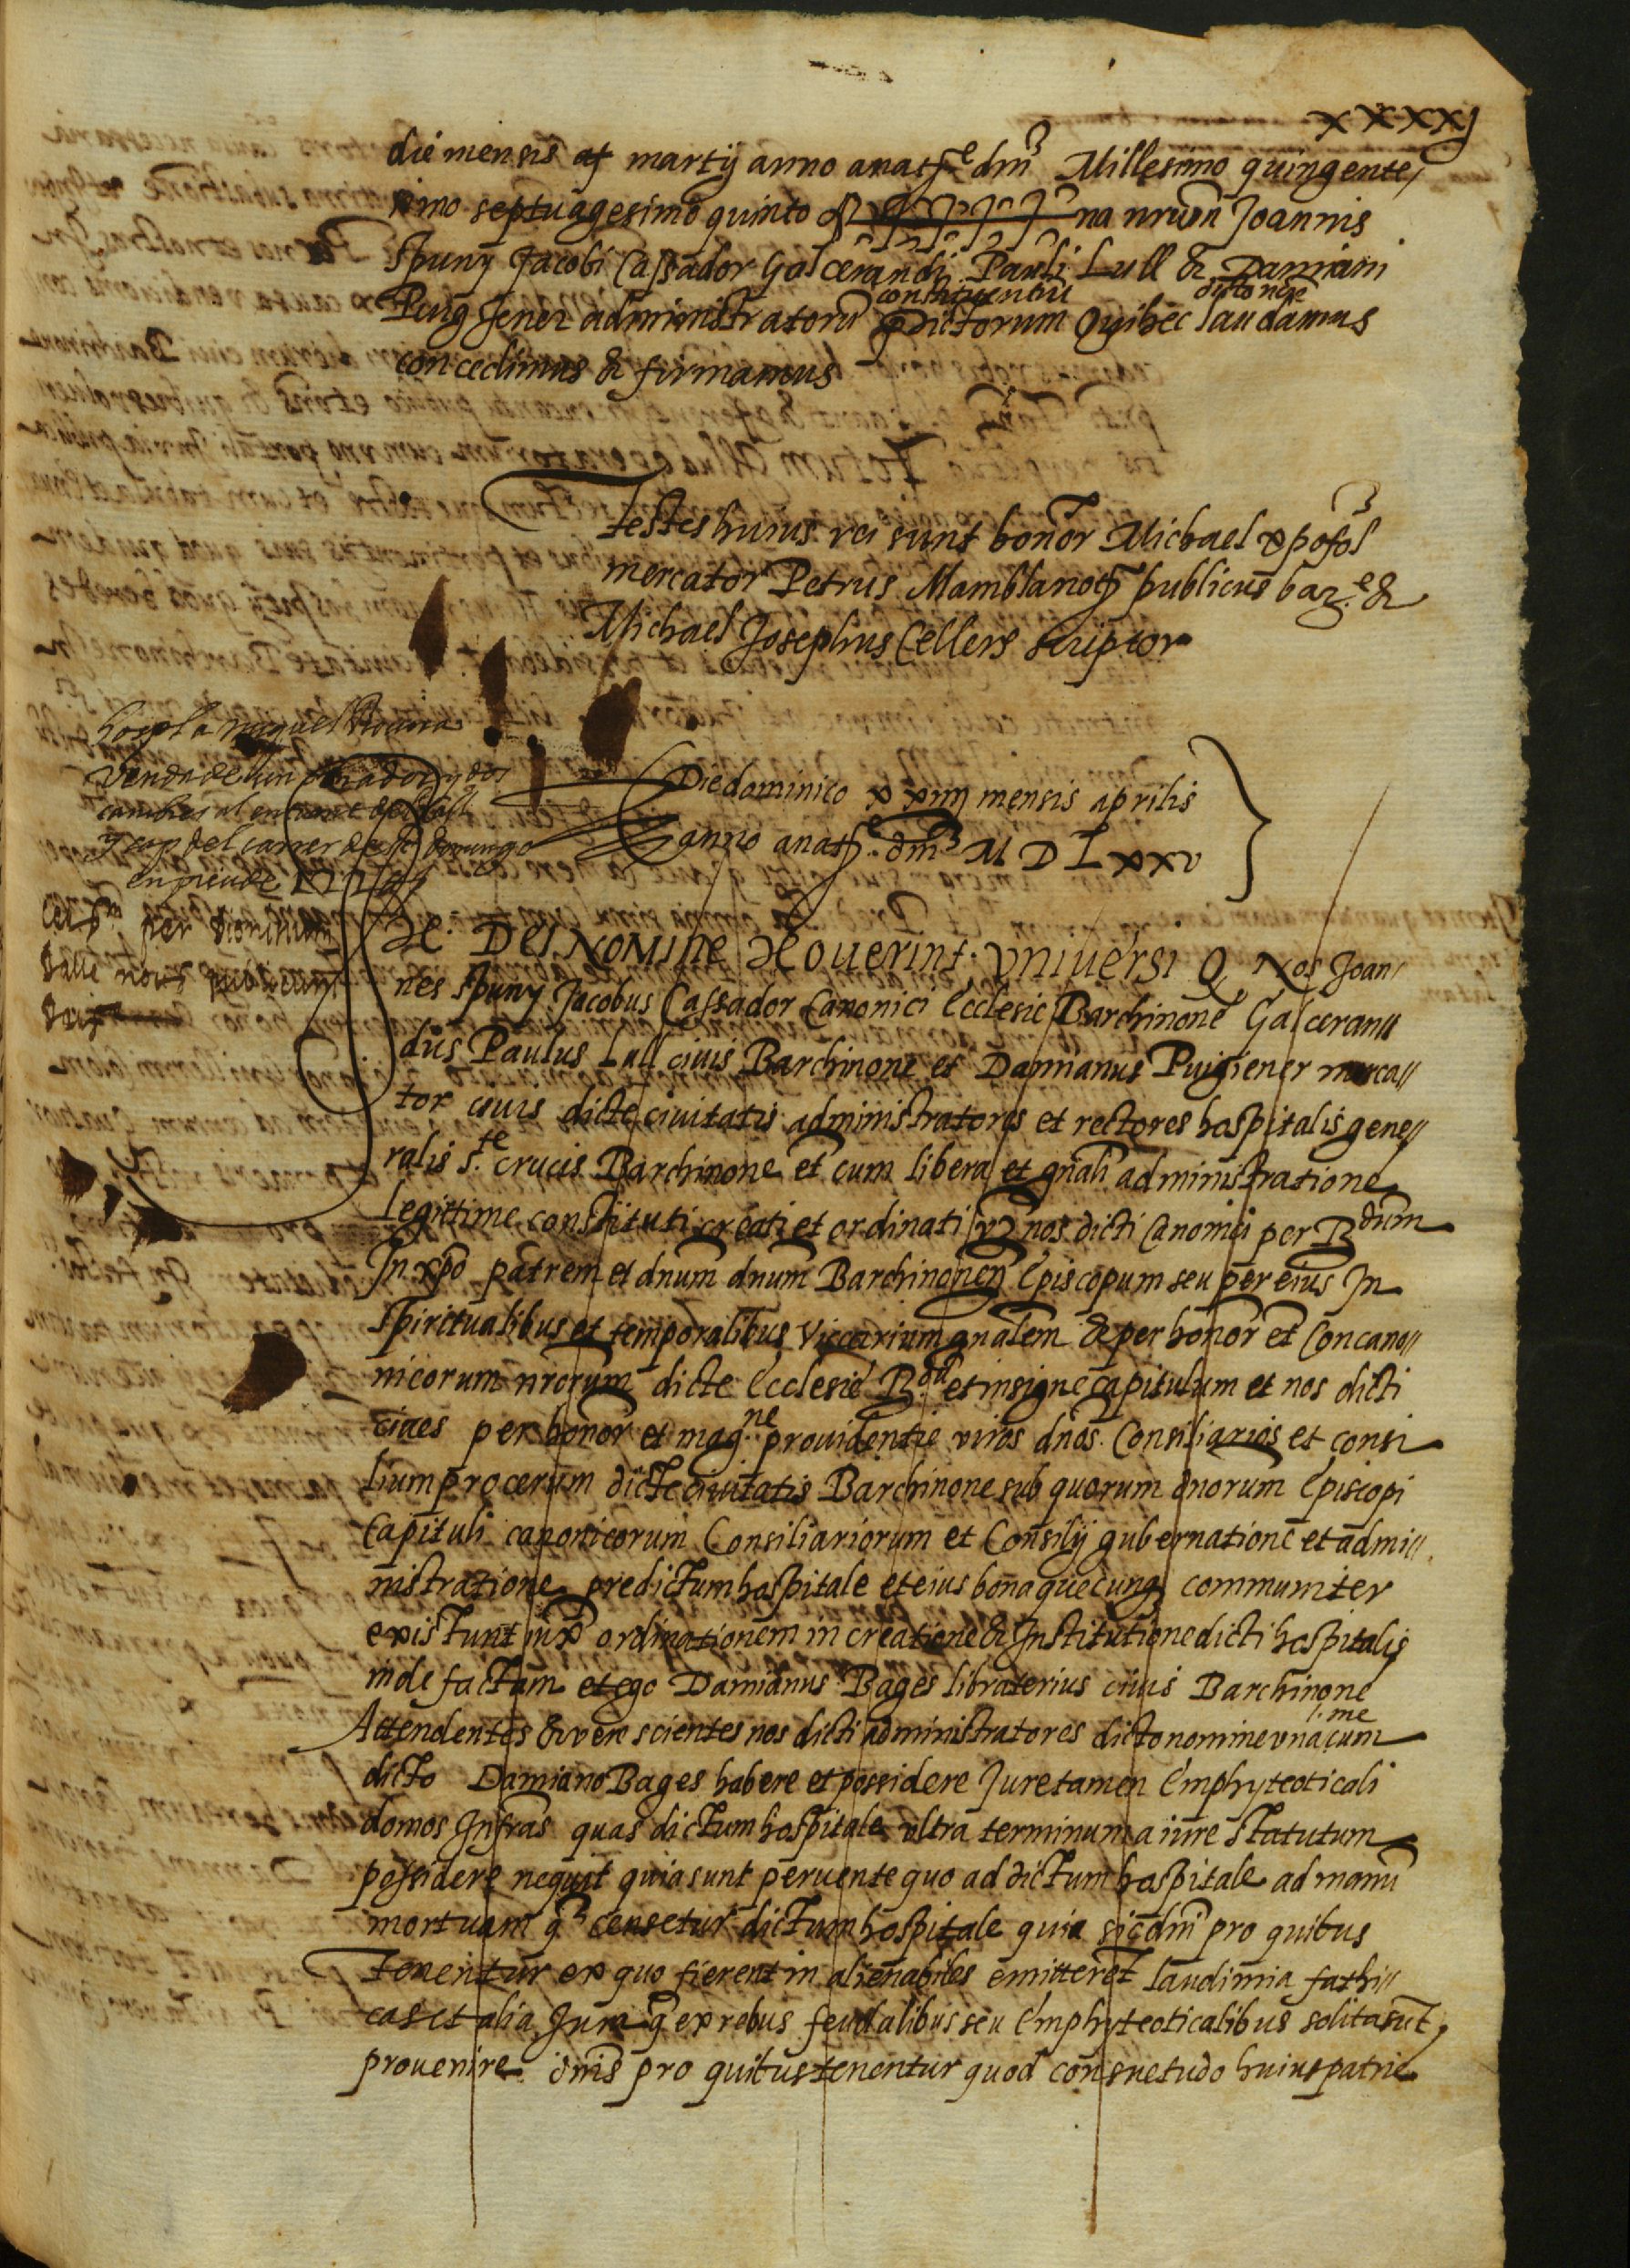 xxxxj
die mensis martij anno a nat.e dni Millesimo quingente/
simo septuagesimo quinto na nrum Joannis
Spuny Jacobi Cassador Galcerandi Pauli Lull & Damiani
constituentiu dicto noie
Puig Jener administratoru pdictorum Qui hec laudamus
concedimus & firmamus
Testes huius rei sunt honor Michael
mercator Petrus Mamblanot publicus bar.e &
Michael Josephus Cellers scriptor
hospl a miquel
Venda de un obrador y dos
cambres al
y cap del carrer de st domingo
en preu de
Die dominico xxiiij mensis aprilis
anno a nat.e dni M D Lxxv
per
not publicum
Bar
In Dei Nomine Nouerint vniuersi Q Nos Joan/
nes Spuny Jacobus Cassador Canonici Ecclesie Barchinone Galceran//
dus Paulus Lull ciuis Barchinone et Damianus Puigiener merca//
tor ciuis dicte ciuitatis administratores et rectores hospitalis gene//
ralis s.te crucis Barchinone et cum libera et gnali administratione
legittime constituti creati et ordinati nos dicti Canonici per Rdum
In xpo patrem et dnum dnum Barchinonen Episcopum seu per eius In
Spiritualibus et temporalibus viccarium gnalem & per honor et Concano//
nicorum nrorum dicte Ecclesie R.du et insigne capitulum et nos dicti
ciues per honor et mag.ne prouidentie viros dnos Consiliarios et consi
lium procerum dicte ciuitatis Barchinone sub quorum dnorum Episcopi
Capituli canonicorum Consiliariorum et Consilij gubernatione et admi//
nistratione predictum hospitale et eius bona quecunq communiter
existunt iuxa ordinationem in creatione & Institutione dicti hospitalis
inde factam et ego Damianus Bages libraterius ciuis Barchinone
Attendentes & vere scientes nos dicti administratores dicto nomine vna cum
me
dicto Damiano Bages habere et possidere Jure tamen Emphyteoticali
domos Infras quas dictum hospitale vltra terminum a iure statutum
possidere nequit quia sunt peruente quo ad dictum hospitale ad manu
mortuam censetur dictum hospitale quia sic dni pro quibus
tenentur ex quo fierent inalienabiles emitteret laudimia fathi//
cas et alia Jura q ex rebus feudalibus seu Emphyteoticalibus solita sut
prouenire dnis pro quibus tenentur quod consuetudo huius patrie